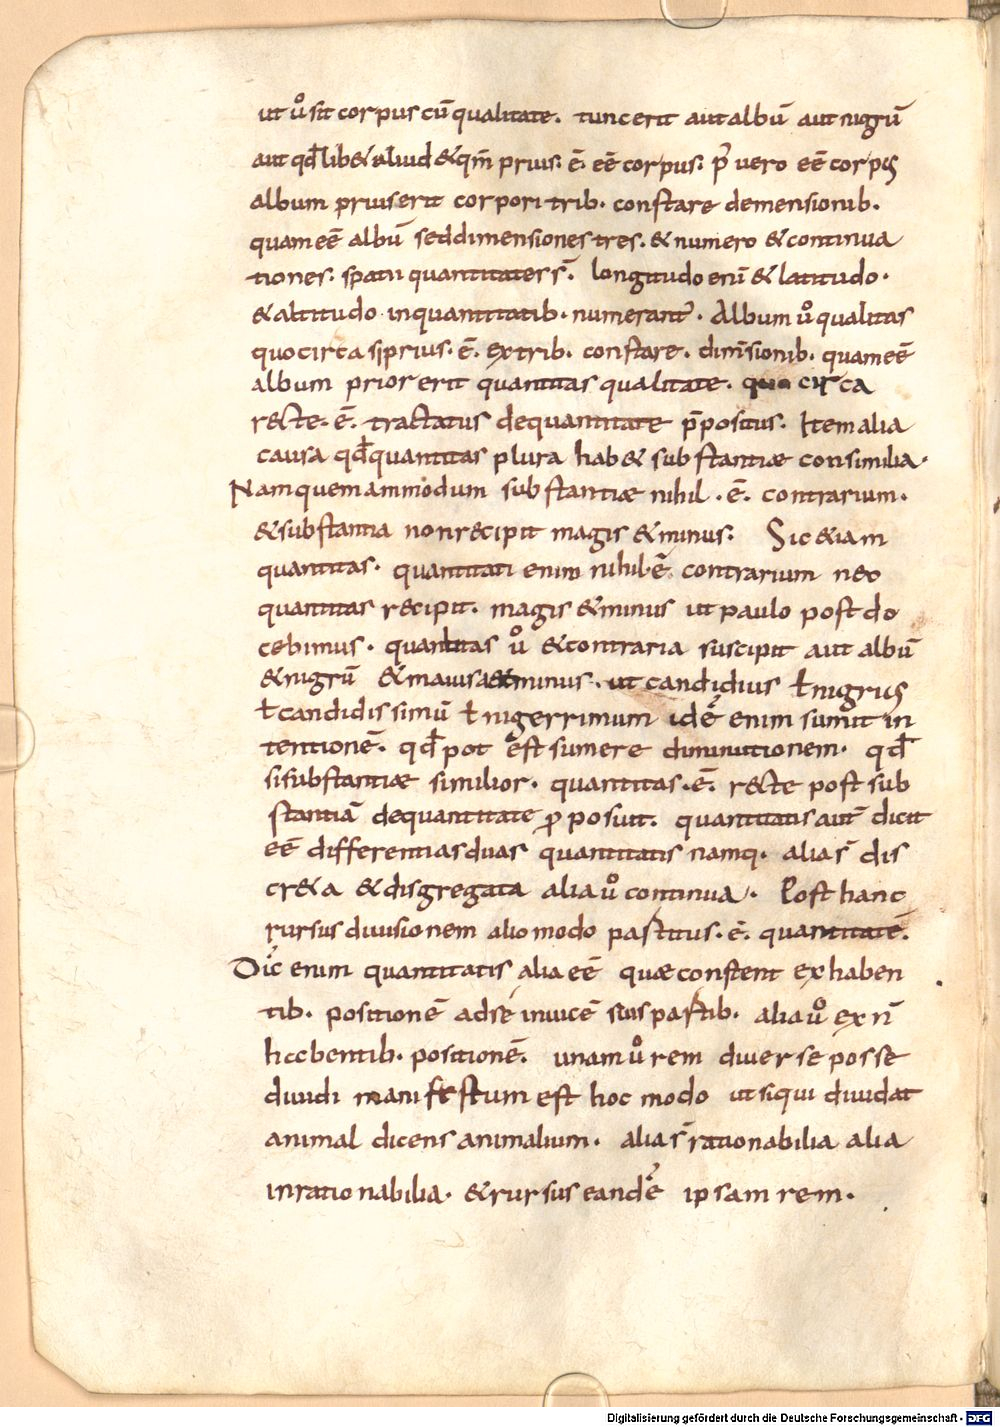 ut ůsit corpus cū qualitate. tunc erit aut albū aut nigrū
aut qđ lib& aliud &qm̄ prius. ē. eē corpus. p̄ vero eē corpꝯ
album prius erit corpori trib. constare demensionib.
quam eē albū sed dimensiones tres. & numero & continua
tiones. spatii quantitates s̄. longitudo eni & latitudo.
& altitudo. in quantitatib. numerant᷒. Album ů qualitas
quocirca si prius. ē. ex trib. constare. dim̄sionib. quam eē
album prior erit quantitas qualitate. quo circa
recte. ē. tractatus de quantitate p̄positus. Item alia
causa qđ quantitas plura hab& substantiæ consimilia.
Nam quemammodum substantiæ nihil. ē. contrarium.
& substantia non recipit magis & minus. Sic &iam
quantitas. quantitati enim nihil ē. contrarium nec
quantitas recipit. magis & minus ut paulo post do
cebimus. qualitas ů & contraria suscipit aut albū
& nigrū & minus. ut candidius ł nigriꝯ
ł candidissimū ł nigerrimum idē enim sumit in
tentionē. qđ pot est sumere diminutionem. qđ
si substantiæ similior. quantitas. ē. recte post sub
stantiā de quantitate p̱posuit. quantitatis aut̄ dicit
eē differentias duas quantitatis namq. alia s̄ dis
cr&a & disgregata alia ů continua. Post hanc
rursus divisionem alio modo pastitus. ē. quantitatē.
Dic̄ enim quantitatis alia eē quæ constent ex haben
tib. positionē ad se invicē suis pastib. alia ů ex n̄
hcbentib. positionē. unam ů rem diverse posse
dividi manifestum est hoc modo ut siqui dividat
animal dicens animalium. alia s̄ rationabilia alia
inrationabilia. & rursus eandē ipsam rem.
Digitalisierung gefördert durch die Deutsche Forschungsgemeinschaft - DFG